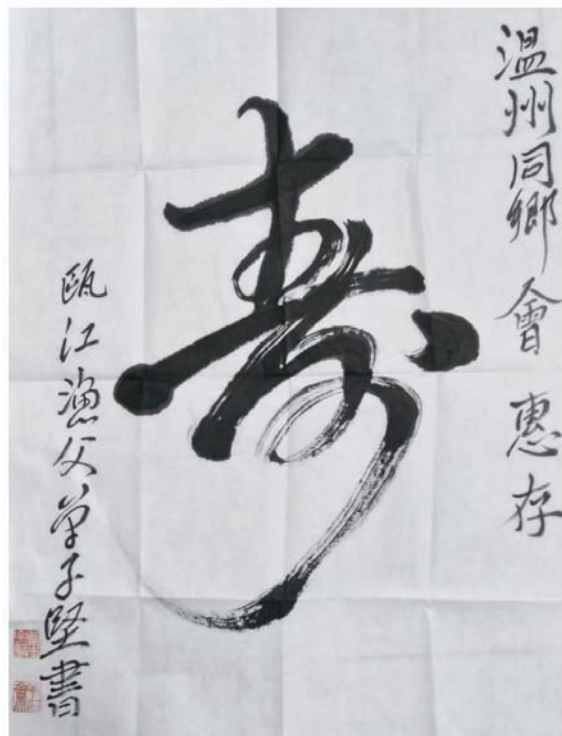 温州同鄉會惠存
寿
瓯江漁父單子堅書